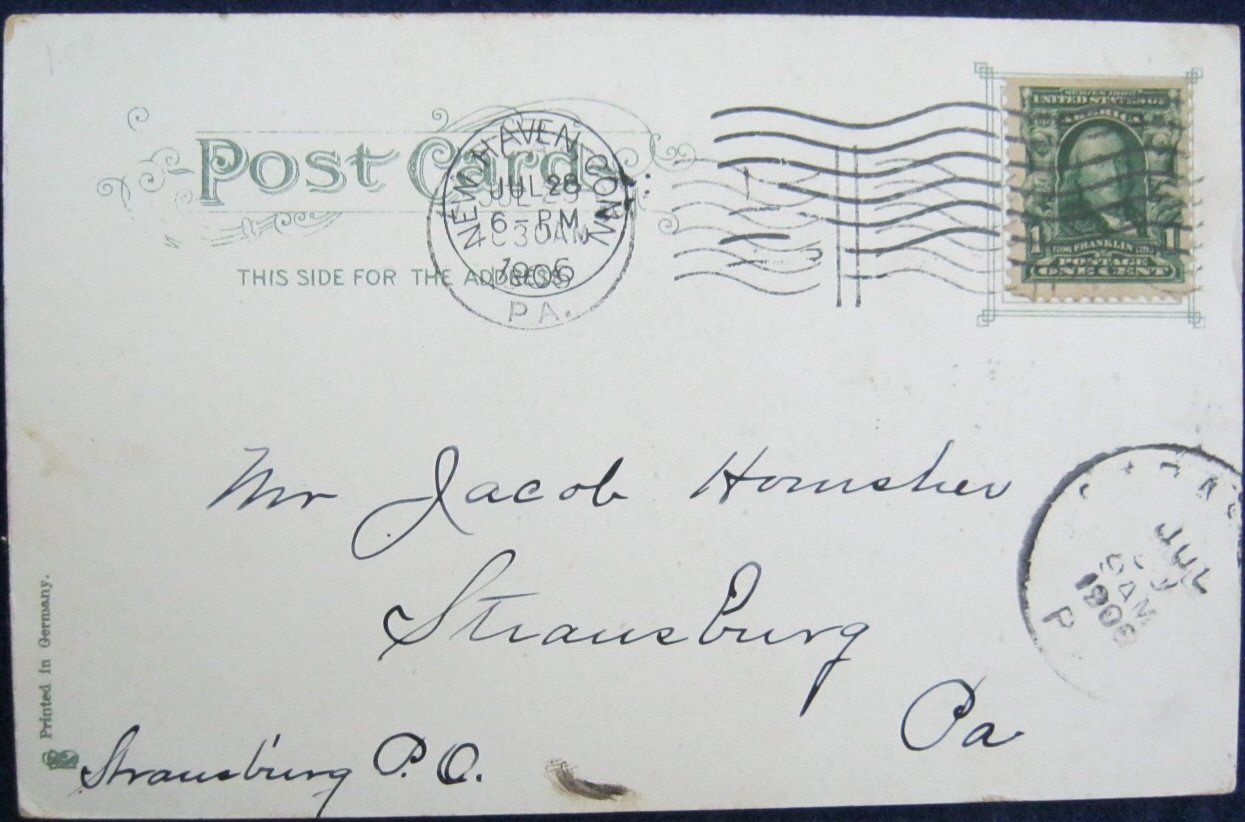 Post Card
THIS SIDE FOR THE ADDRESS
NEW HAVEN CONN
JUL 28
6 - PM
1906
30 AM
PA.
SERIES 1902
UNITED STATES OF
AMERICA
1 FRANKLIN 1
POSTAGE
ONE CENT
Mr Jacob Homsher
Strausburg
Pa
JUL
AM
1906
P
Strausburg P.O.
Printed in Germany.